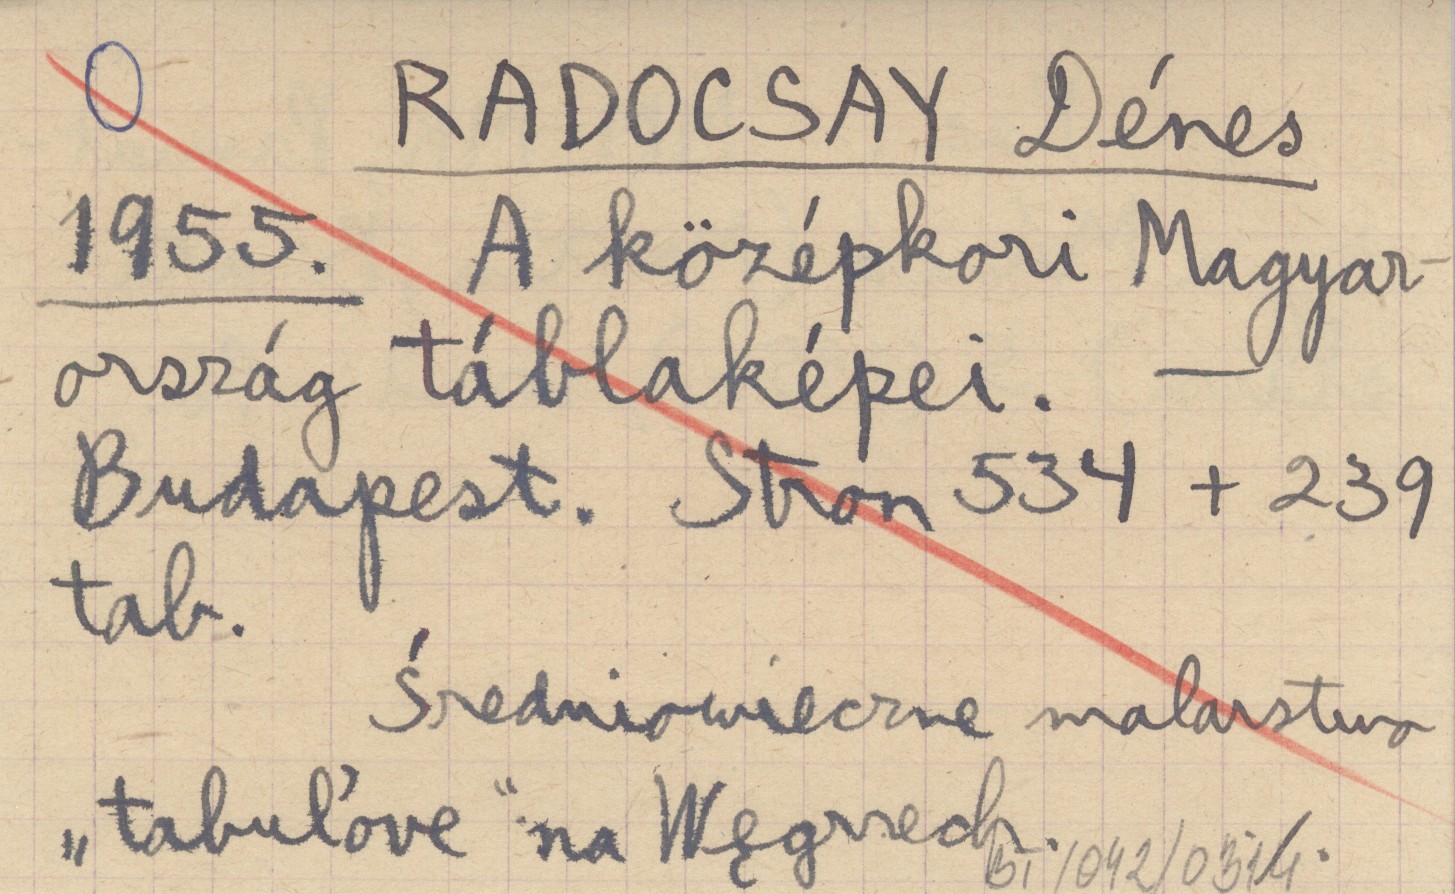 RADOCSAY Dénes
1955. A középkori Magyar-
ország táblaképei. —
Budapest. Stron 534 + 239
tab.
Średniowieczne malarstwo
„tabuľove“ na Węgrzech.